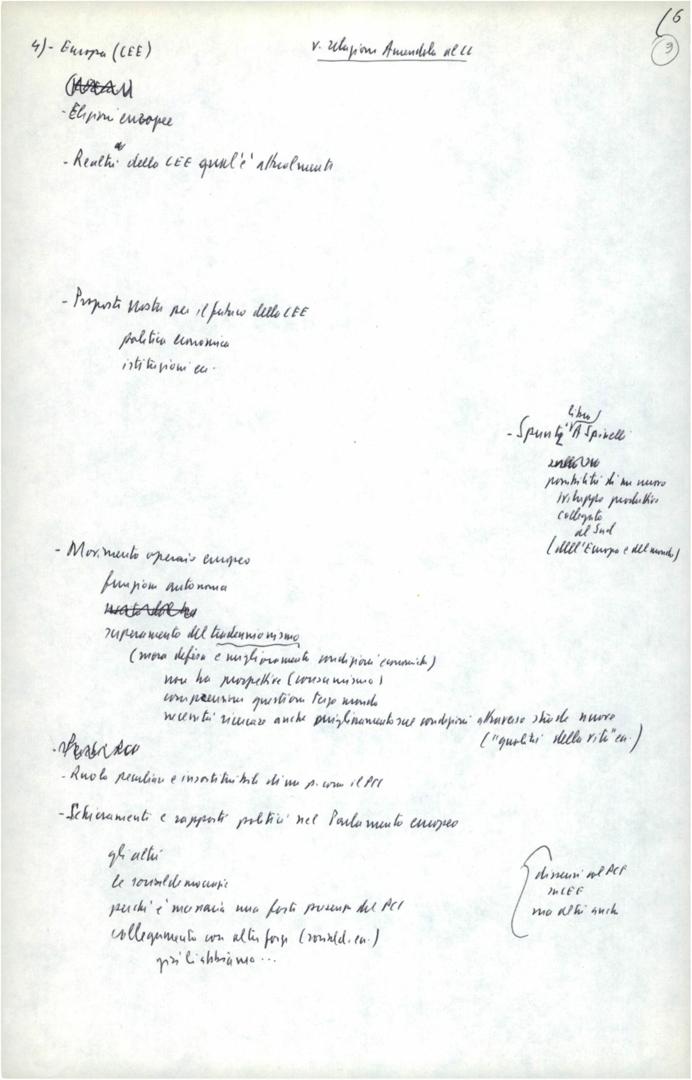 6
3
4)- Europa (CEE)
v. relazione Amendola al CC
- Elezioni europee
- Realtà della CEE qual'è attualmente
- Proposte nostre per il futuro della CEE
politica economica
istituzioni ecc.
libro
- Spunti A Spinelli
possibilità di un nuovo
sviluppo produttivo
collegato
al Sud
(dell'Europa e del mondo)
- Movimento operaio europeo
funzione autonoma
superamento del tradeunionismo
(mera difesa e miglioramento condizioni economiche)
non ha prospettive (consumismo)
comprensione questione terzo mondo
necessità ricercare anche miglioramento sue condizioni attraverso strade nuove
("qualità della vita" ecc.)
- Ruolo peculiare e insostituibile di un p. come il PCI
- Schieramenti e rapporti politici nel Parlamento europeo
gli altri
le socialdemocrazie
perché è necessaria una forte presenza del PCI
collegamento con altre forze (sociald. ecc.)
già li abbiamo...
dissensi col PCF
su CEE
ma altri anche